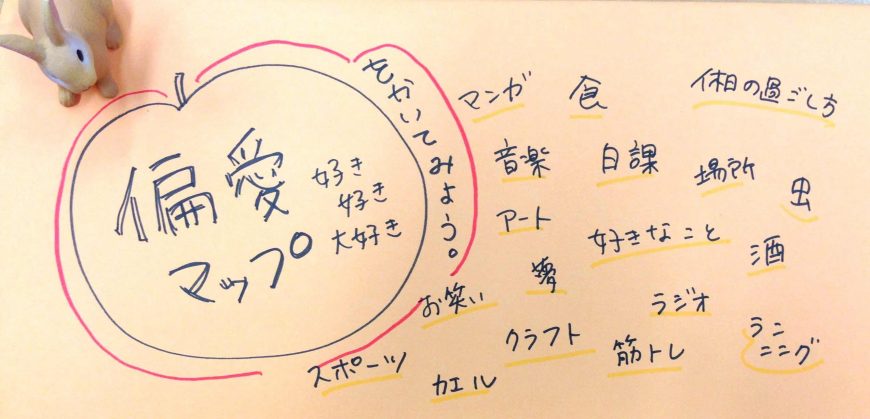 偏愛
マップ
好き
好き
大好き
をかいてみよう。
マンガ
食
休日の過ごし方
音楽
日課
場所
虫
アート
好きなこと
酒
お笑い
夢
ラジオ
スポーツ
クラフト
筋トレ
ランニング
カエル